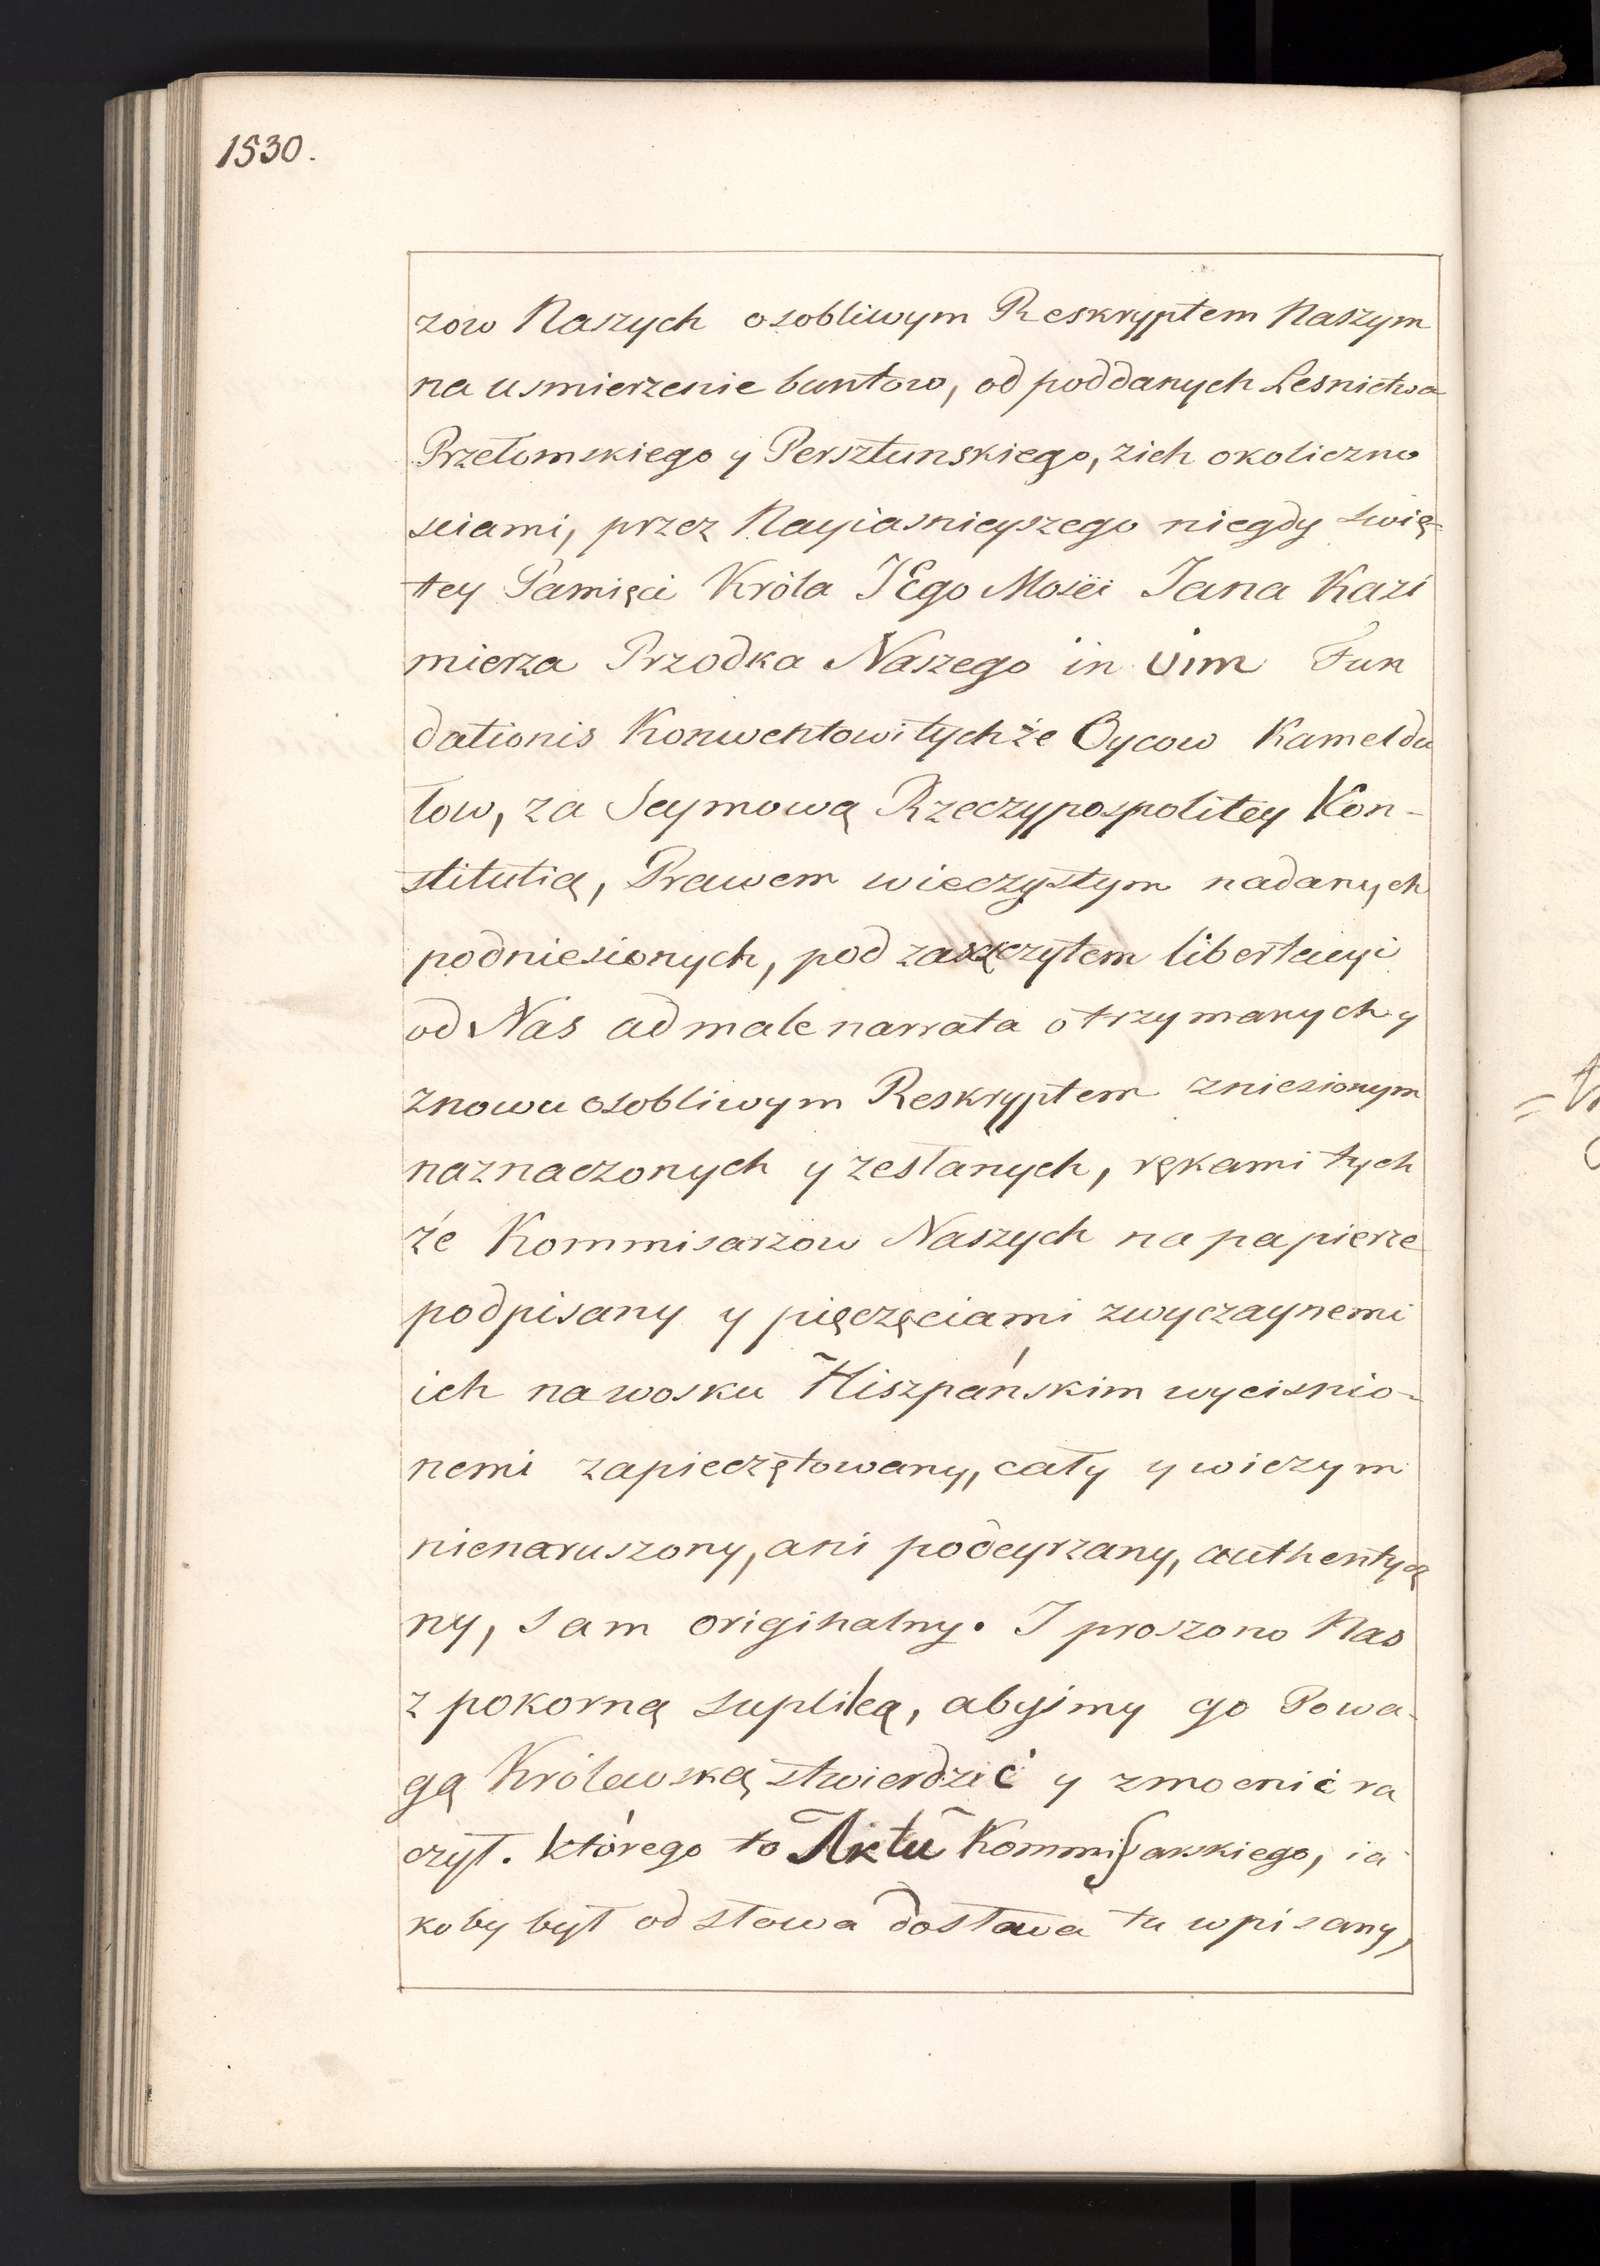 1530.
zow Naszych osobliwym Reskryptem Naszym
na usmierzenie buntow, od poddanych Lesnictwa
Przełomskiego y Persztunskiego, zich okoliczno
sciami, przez Nayiasnieyszego niegdy swię-
tey Pamięci Króla JEgo Mości Jana Kazi
mierza Przodka Naszego in vim Fun
dationis Konwentowi tychże Oycow Kameldu
łow, za Seymową Rzeczypospolitey Kon-
stitutią, Prawem wieczystym nadanych
podniesionych, pod zaszczytem libertacyi
od Nas ad male narrata otrzymanych y
znowu osobliwym Reskryptem zniesionym
naznaczonych y zesłanych, rękami tych
że Kommisarzow Naszych na papierze
podpisany y pięczęciami zwyczaynemi
ich na wosku Hiszpańskim wycisnio-
nemi zapieczętowany, cały y wiczym
nienaruszony, ani podeyrzany, authentycz
ny, sam originalny. I proszono Nas
z pokorną supliką, abyśmy go Powa-
gą Królewską stwierdzić y zmocnić ra
czył. którego to Aktu Kommissarskiego, ia
koby był od słowa dosława tu wpisany,